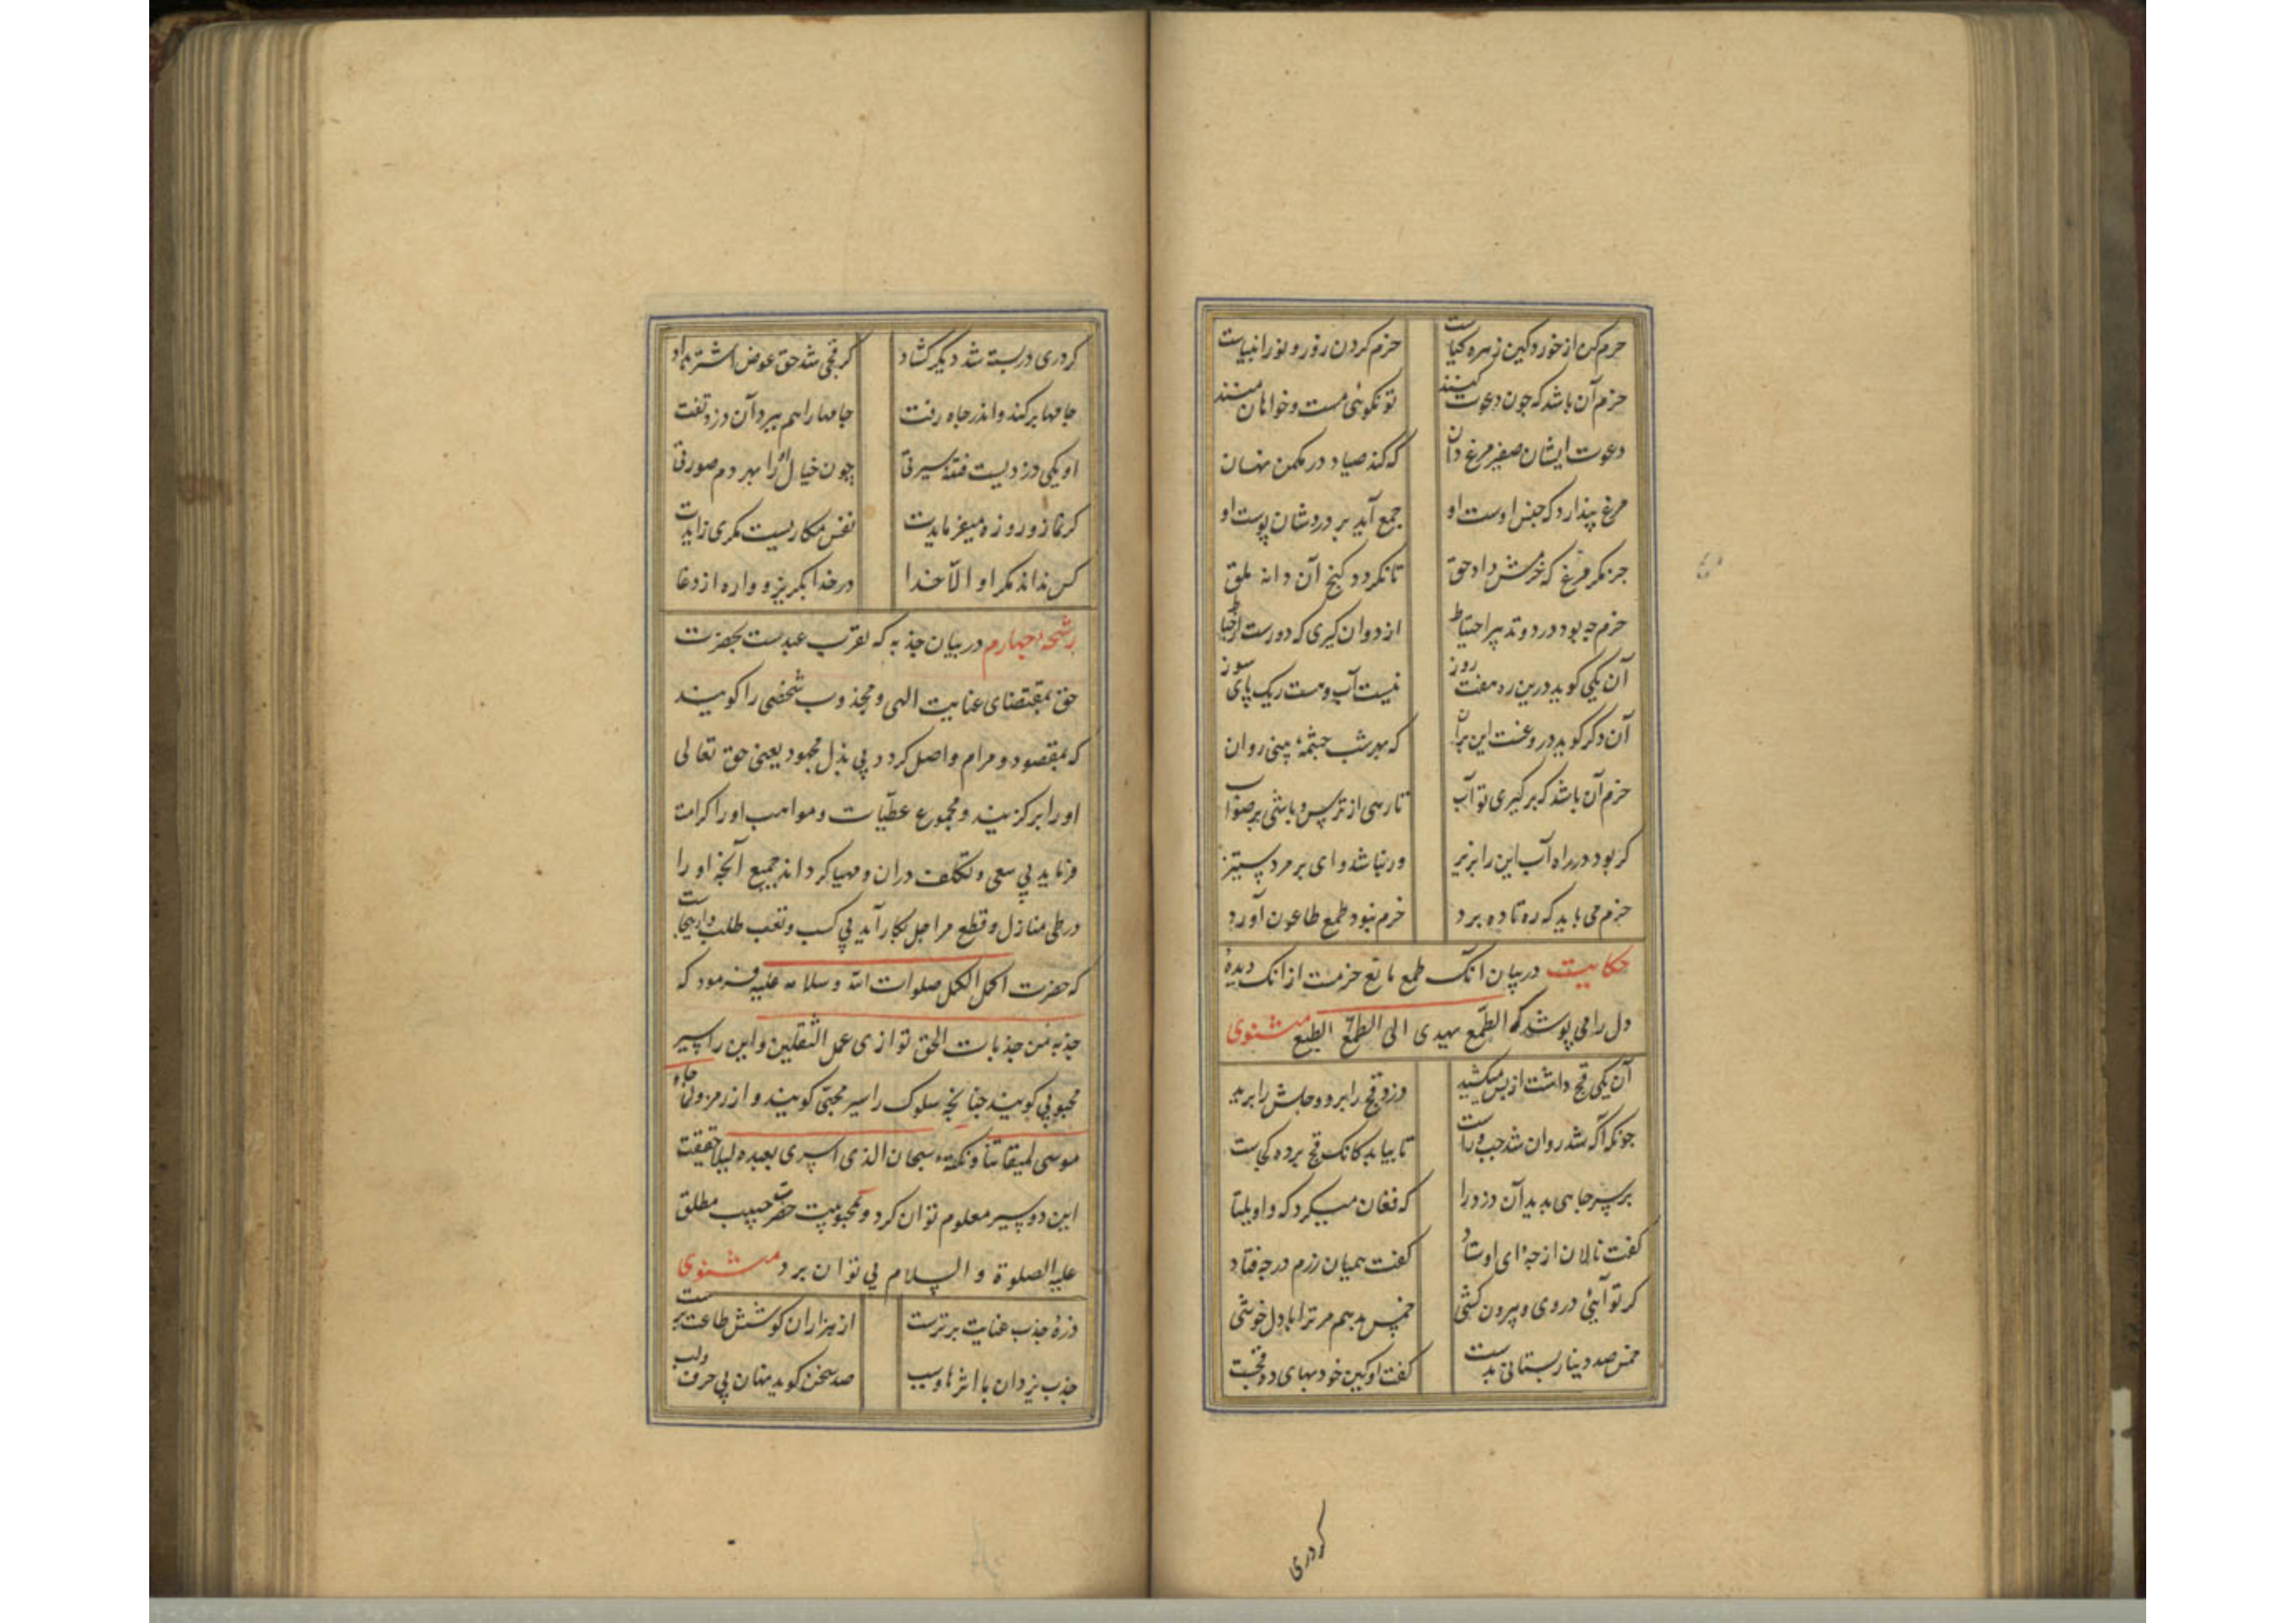 حزم کن از خورد کین زهره کیاست حزم کردن زور و نور انبیاست
حزم آن باشد که چون دعوت کنند تو نکوئی مست و خواهان منند
دعوت ایشان صفیر مرغ دان که کند صیاد در مکمن نهان
مرغ پندارد که جنس اوست او جمع آید بر دردشان پوست او
جز مکر مرغی که حزمش داد حق تا نکردد کیج آن دانه ملق
حزم چه بود در دو تدبیر احتیاط از دو آن کیری که دورست از خباط
آن یکی کوید درین ره هفت روز نیست آب و هست ریک پای سوز
آن دکر کوید دروغست این بران که بهر شب چشمهٔ بینی روان
حزم آن باشد که بر کیری تو آب تا رهی از ترس و باشی بر صواب
کر بود در راه آب این را بریز ور نباشد وای بر مرد ستیز
حزم می باید که ره تا ده برد حزم نبود طمع طاعون آورد
حکایت در بیان آنک طمع مانع حزمست از آنک دیدهٔ
دل را می پوشد که الطمع یهدی الی الطمع الطبع مثنوی
آن یکی قج داشت از پس میکشید دزد قج را برد و حبلش را برید
چونکه آکه شد روان شد چپ و راست تا بیابد کانک قج برده کجاست
بر سر چاهی بدید آن دزد را که فغان میکرد که واویلتا
کفت نالان از چهٔ ای اوستاد کفت همیان زرم در چه فتاد
کر تو آنی در روی و بیرون کشی خمس بدهم مر ترا با دل خوشی
خمس صد دینار بستانی بدست کفت او کین خود بهای ده قجست
کر دری
کر دری در بسته شد دیکر کشاد کر قجی شد حق عوض اشتر بداد
جامها بر کند و اندر چاه رفت جامها را هم ببرد آن دزد تفت
او یکی دزدیست فتنه سیرتی چون خیال او را بهر دم صورتی
کر نماز و روزه میفرمایدت نفس مکاریست مکری زایدت
کس نداند مکر او الا خدا در خدا بکریز و واره از دغا
رشحهٔ چهارم در بیان جذبه که تقرب عبدست بحضرت
حق بمقتضای عنایت الهی و مجذوب شخصی را کویند
که بمقصود و مرام واصل کردد بی بذل مجهود یعنی حق تعالی
او را بر کزیند و مجموع عطیات و مواهب او را کرامت
فرماید بی سعی و تکلف در آن و مهیا کرداند جمیع آنچه او را
در طی منازل و قطع مراحل بکار آید بی کسب و تعب طلب و ازینجاست
که حضرت اکمل الکمل صلوات الله و سلامه علیه فرمود که
جذبة من جذبات الحق توازی عمل الثقلین و این را سیر
محبوبی کویند چنانچه سلوک را سیر محبی کویند و از رمز ولما جاء
موسی لمیقاتنا و نکتهٔ سبحان الذی اسری بعبده لیلا حقیقت
این دو سیر معلوم توان کرد و بمحبوبیت حضرت حبیب مطلق
علیه الصلوة و السلام پی توان برد مثنوی
ذرهٔ جذب عنایت برترست از هزاران کوشش طاعت پرست
جذب یزدان با اثرها و سبب صد سخن کوید نهان بی حرف و لب